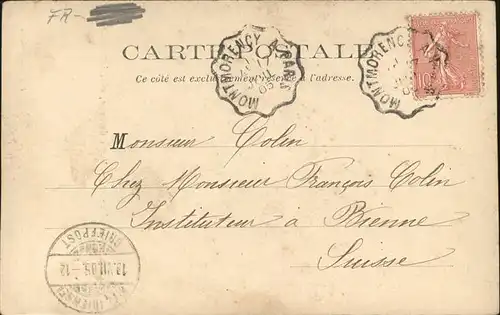 FR-
CARTE POSTALE
Ce côté est exclusivement réservé à l'adresse.
MONTMORENCY A PARIS
05
MONTMORENCY A
10
Monsieur Colin
Chez Monsieur François Colin
Instituteur à Bienne
Suisse
BRIEFPOST